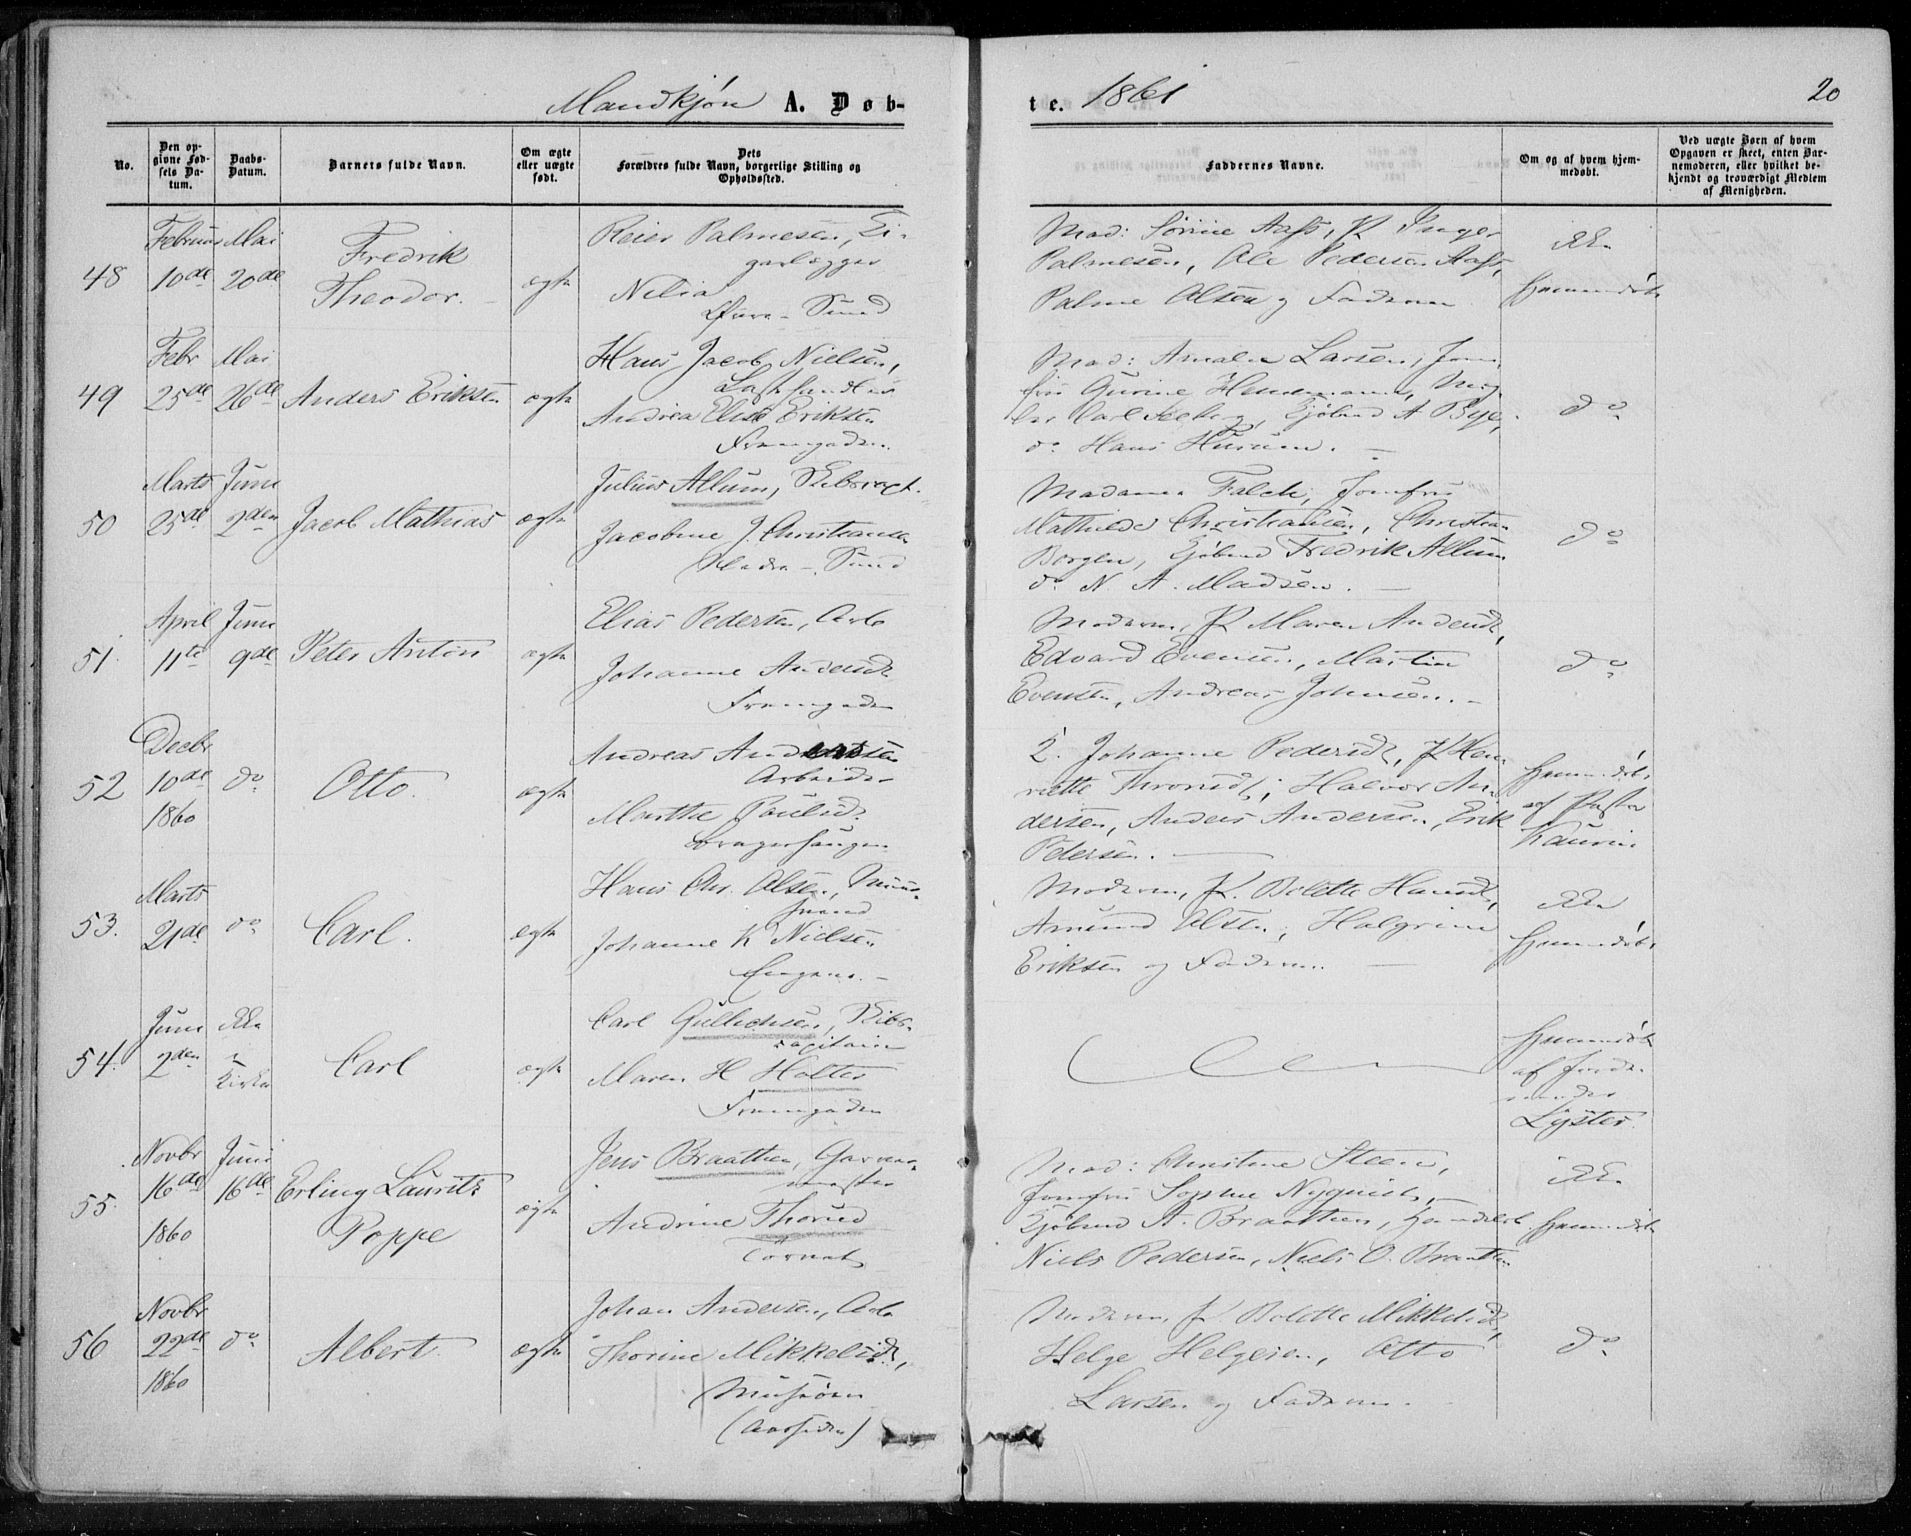 Mandkjøn A. Døb-
te. 1861
20
No.
Den op-
givne Fød-
sels Da-
tum.
Daabs-
Datum.
Barnets fulde Navn.
Om ægte
eller uægte
født.
Dets
Forældres fulde Navn, borgerlige Stilling og
Opholdssted.
Faddernes Navne.
Om og af hvem hjem-
medøbt.
Ved uægte Børn af hvem
Opgaven er skeet, enten Bar-
nemoderen, eller hvilket be-
kjendt og troværdigt Medlem
af Menigheden.
48
Februar
10de
Mai
20de
Fredrik
Theodor.
ægte
Reier Palmesen, Ci-
garlægger
Nilia
Øvre - Sund
Mad: Sørine Aass, P. Inger
Palmesen, Ole Pedersen Aass,
Palme Olsen og Faderen
ikke
hjemmedøbt
49
Febr
25de
Mai
26de
Anders Eriksen
ægte
Hans Jacob Nielsen,
Andrea Elise Eriksen
Fremgaden.
Mad: Amalie Larsen, Jom-
fru Gurine
Carl Seeberg, Gjøbmd A Bye,
do Hans Husum. -
do
50
Marts
25de
Juni
2den
Jacob Mathias
ægte
Julius Allum, Skibsregt.
Jacobine J. Christiansen
Nedre - Sund
Madame Falch, Jomfru
Mathilde Christiansen, Christian
Borgen, Kjøbmd Fredrik Allum
do N. A. Madsen. -
do
51.
April
11te
Juni
9de
Peter Anton
ægte
Elias Pedersen, Arb
Johanne Andersdt
Fremgaden
Moderen, P Maren Andersdt,
Edvard Evensen, Martin
Evensen, Andreas Johnsen. -
do
52
Decbr
10de
1860
do
Otto.
ægte
Andreas Andersen
Arbeider
Marthe Paulsd.
Bragerhaugen
K. Johanne Pedersdt, P Hen-
riette Thronsdt; Halvor An-
dersen, Anders Andersen, Erik
Pedersen. -
hjemmedøbt
af Pastor
Kaurin
53.
Marts
21de
do
Carl.
ægte
Hans Chr. Olsen, Muur-
svend
Johanne K Nielsen
Engene. -
Moderen, P. Bolette Hansdt,
Amund Olsen, Halgrim
Eriksen og Faderen. -
ikke
hjemmedøbt
54.
Juni
2den
ikke
i
Kirken
Carl
ægte
Carl Gullichsen, Skibs-
capitain
Maren H Holter
Fremgaden
hjemmedøbt
af Jorde-
moder
Lyster.
55.
Novbr
16de
1860
Juni
16de
Erling Lauritz
Poppe
ægte
Jens Braathen, Garver-
mester
Andrine Thorud
Tørnet
Mad: Christine Steen,
Jomfru Sophie Nyquist, -
Kjøbmd A. Braathen, Handelsb.
Niels Pedersen, Niels O. Braathen
ikke
hjemmedøbt
56
Novbr
22de
1860
do
Albert.
ægte
Johan Andersen, Arb
Thorine Mikkelsdt,
(Aassiden)
Moderen, P. Bolette Mikkelsdt,
Helge Helgesen, Otto
Larsen og Faderen.
do